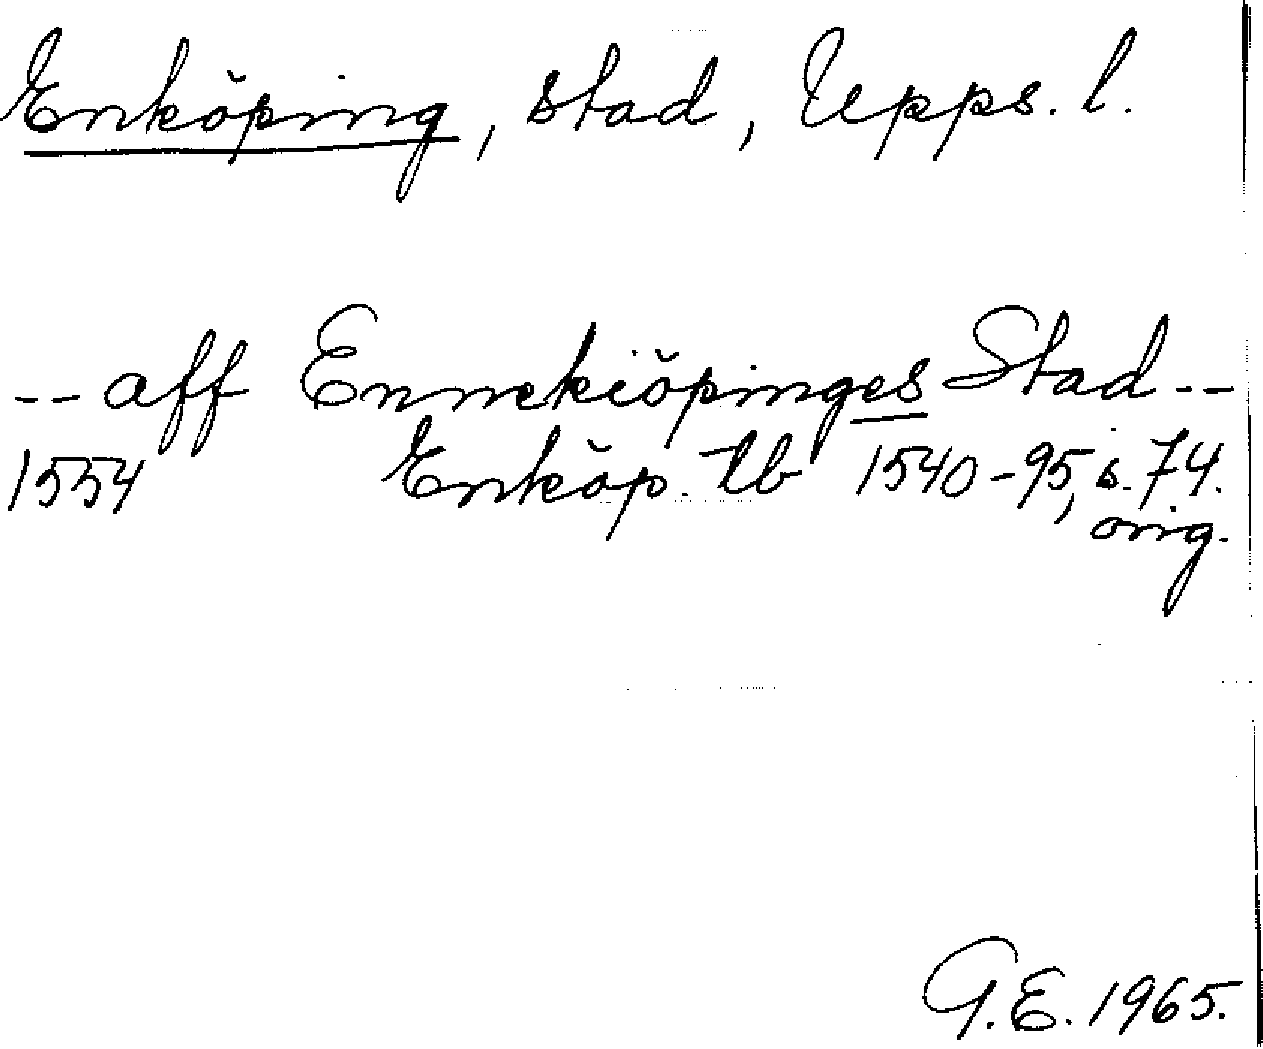 Enköping, stad, Upps. l.
-- aff Ennekiöpinges Stad --
1554 Enköp. tb 1540-95, s. 74.
orig.
G.E. 1965.